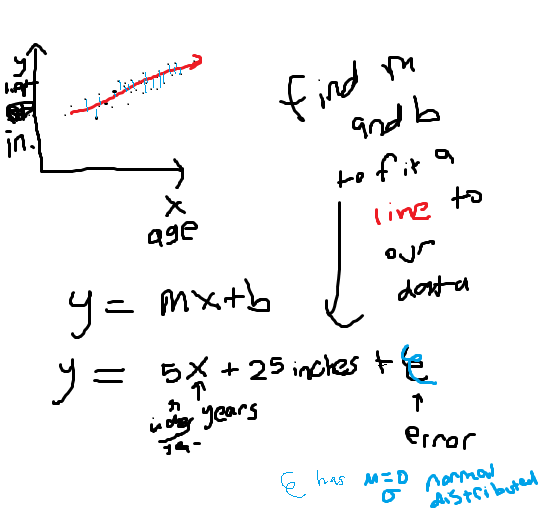 y
in.
x
age
find m
and b
to fit a
line to
our
data
y = mx+b
y = 5x + 25 inches + ε
years
error
ε has μ=0 normal
σ distributed